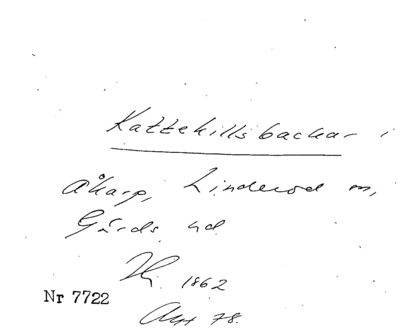 Kattekillsbackar i
Åkarp, Linderöd sn,
Gärds hd
1862
Nr 7722
Akt 78.